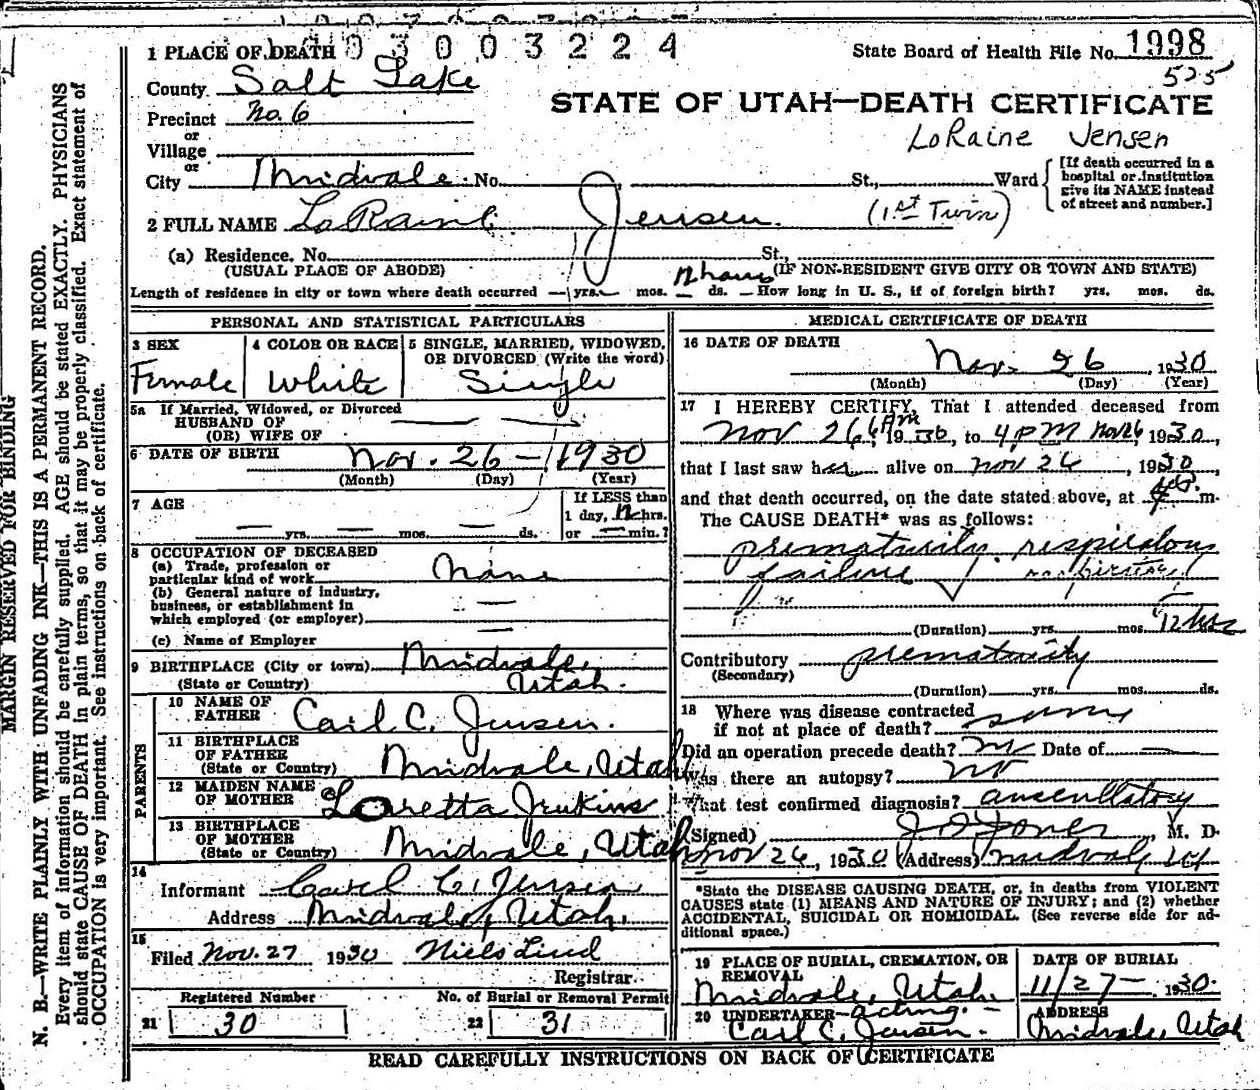 0 3 0 0 3 2 2 4
1 PLACE OF DEATH
State Board of Health File No. 1998
525
County Salt Lake
STATE OF UTAH—DEATH CERTIFICATE
Precinct No. 6
or
Village
LoRaine Jensen
or
City Midvale No. St., Ward
[If death occurred in a hospital or institution give its NAME instead of street and number.]
2 FULL NAME LaRaine Jensen. (1st Twin)
(a) Residence. No. St.,
(USUAL PLACE OF ABODE)
12 hours (IF NON-RESIDENT GIVE CITY OR TOWN AND STATE)
Length of residence in city or town where death occurred — yrs. mos. — ds. — How long in U. S., if of foreign birth? yrs. mos. ds.
PERSONAL AND STATISTICAL PARTICULARS
3 SEX
Female
4 COLOR OR RACE
White
5 SINGLE, MARRIED, WIDOWED,
OR DIVORCED (Write the word)
Single
5a If Married, Widowed, or Divorced
HUSBAND OF
(OR) WIFE OF
6 DATE OF BIRTH Nov. 26 - 1930
(Month) (Day) (Year)
7 AGE
— yrs. — mos. — ds.
If LESS than
1 day, 12 hrs.
or — min.?
8 OCCUPATION OF DECEASED
(a) Trade, profession or
particular kind of work None
(b) General nature of industry,
business, or establishment in
which employed (or employer) —
(c) Name of Employer —
9 BIRTHPLACE (City or town) Midvale,
(State or Country) Utah.
PARENTS
10 NAME OF
FATHER Carl C. Jensen.
11 BIRTHPLACE
OF FATHER
(State or Country) Midvale, Utah
12 MAIDEN NAME
OF MOTHER Loretta Jenkins
13 BIRTHPLACE
OF MOTHER
(State or Country) Midvale, Utah
14
Informant Carl C. Jensen
Address Midvale, Utah.
15
Filed Nov. 27 1930 Niels Lind
Registrar.
Registered Number
21 30
No. of Burial or Removal Permit
22 31
MEDICAL CERTIFICATE OF DEATH
16 DATE OF DEATH
Nov. 26, 1930
(Month) (Day) (Year)
17 I HEREBY CERTIFY, That I attended deceased from
Nov 26 AM 1930, to 4 PM Nov 26 1930,
that I last saw her alive on Nov 26, 1930,
and that death occurred, on the date stated above, at 4 P. m.
The CAUSE DEATH* was as follows:
prematurity respiratory
failure
(Duration) yrs. mos. 12 hrs
Contributory prematurity
(Secondary)
(Duration) yrs. mos. ds.
18 Where was disease contracted
if not at place of death? same
Did an operation precede death? no Date of —
Was there an autopsy? no
What test confirmed diagnosis? auscultatory
(Signed) Jones, M. D.
Nov 26, 1930 (Address) Midvale Ut
*State the DISEASE CAUSING DEATH, or, in deaths from VIOLENT
CAUSES state (1) MEANS AND NATURE OF INJURY; and (2) whether
ACCIDENTAL, SUICIDAL OR HOMICIDAL. (See reverse side for ad-
ditional space.)
19 PLACE OF BURIAL, CREMATION, OR
REMOVAL
Midvale, Utah.
DATE OF BURIAL
11/27- 1930.
20 UNDERTAKER - acting. -
Carl C. Jensen.
ADDRESS
Midvale, Utah
READ CAREFULLY INSTRUCTIONS ON BACK OF CERTIFICATE
MARGIN RESERVED FOR BINDING
N. B.—WRITE PLAINLY WITH UNFADING INK—THIS IS A PERMANENT RECORD.
Every item of information should be carefully supplied. AGE should be stated EXACTLY. PHYSICIANS
should state CAUSE OF DEATH in plain terms, so that it may be properly classified. Exact statement of
OCCUPATION is very important. See instructions on back of certificate.